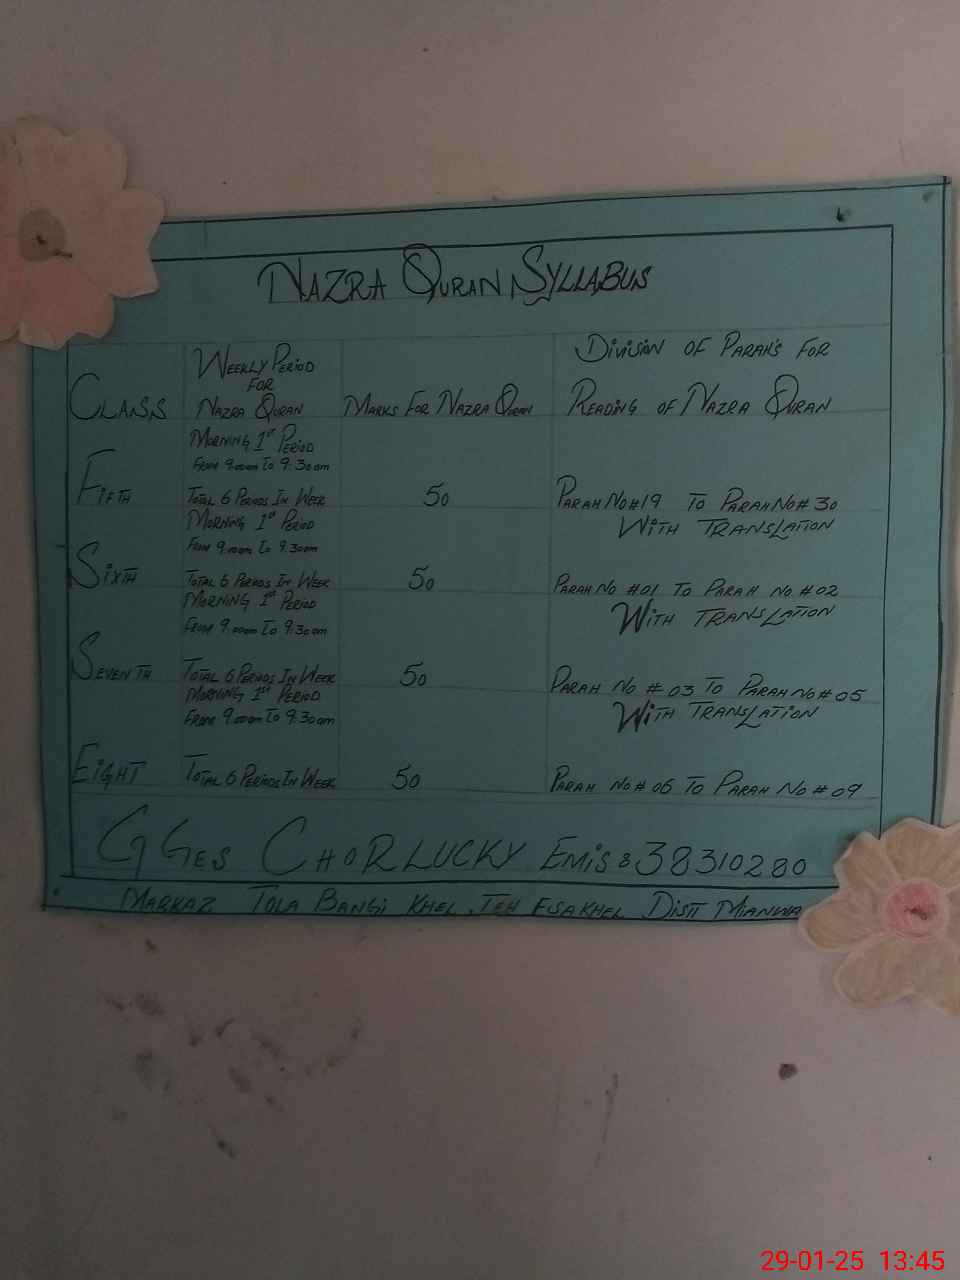 NAZRA QURAN SYLLABUS
CLASS
WEEKLY PERIOD
FOR
NAZRA QURAN
MARKS FOR NAZRA QURAN
DIVISION OF PARAH'S FOR
READING OF NAZRA QURAN
FIFTH
MORNING 1st PERIOD
FROM 9:00am TO 9:30am
TOTAL 6 PERIODS IN WEEK
50
PARAH NO#19 TO PARAH NO#30
SIXTH
MORNING 1st PERIOD
FROM 9:00am TO 9:30am
TOTAL 6 PERIODS IN WEEK
50
WITH TRANSLATION
PARAH NO #01 TO PARAH NO #02
SEVENTH
MORNING 1st PERIOD
FROM 9:00am TO 9:30am
TOTAL 6 PERIODS IN WEEK
50
WITH TRANSLATION
PARAH NO # 03 TO PARAH NO# 05
EIGHT
MORNING 1st PERIOD
FROM 9:00am TO 9:30am
TOTAL 6 PERIODS IN WEEK
50
WITH TRANSLATION
PARAH NO# 06 TO PARAH NO # 09
GGES CHORLUCKY EMIS: 38310280
MARKAZ TOLA BANGI KHEL TEH EISAKHEL DISTT MIANWA
29-01-25 13:45